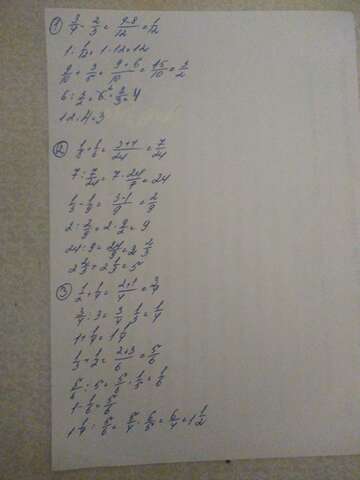 ① 3/4 - 2/3 = 9-8/12 = 1/12
1 : 1/12 = 1 · 12 = 12
9/10 + 3/5 = 9+6/10 = 15/10 = 3/2
6 : 3/2 = 6 · 2/3 = 4
12 : 4 = 3
② 1/8 + 1/6 = 3+4/24 = 7/24
7 : 7/24 = 7 · 24/7 = 24
1/3 - 1/9 = 3-1/9 = 2/9
2 : 2/9 = 2 · 9/2 = 9
24 : 9 = 24/9 = 2 2/3
2 2/3 + 2 1/3 = 5
③ 1/2 + 1/4 = 2+1/4 = 3/4
3/4 : 3 = 3/4 · 1/3 = 1/4
1 + 1/4 = 1 1/4
1/3 + 1/2 = 2+3/6 = 5/6
5/6 : 5 = 5/6 · 1/5 = 1/6
1 - 1/6 = 5/6
1 1/4 : 5/6 = 5/4 · 6/5 = 6/4 = 1 1/2